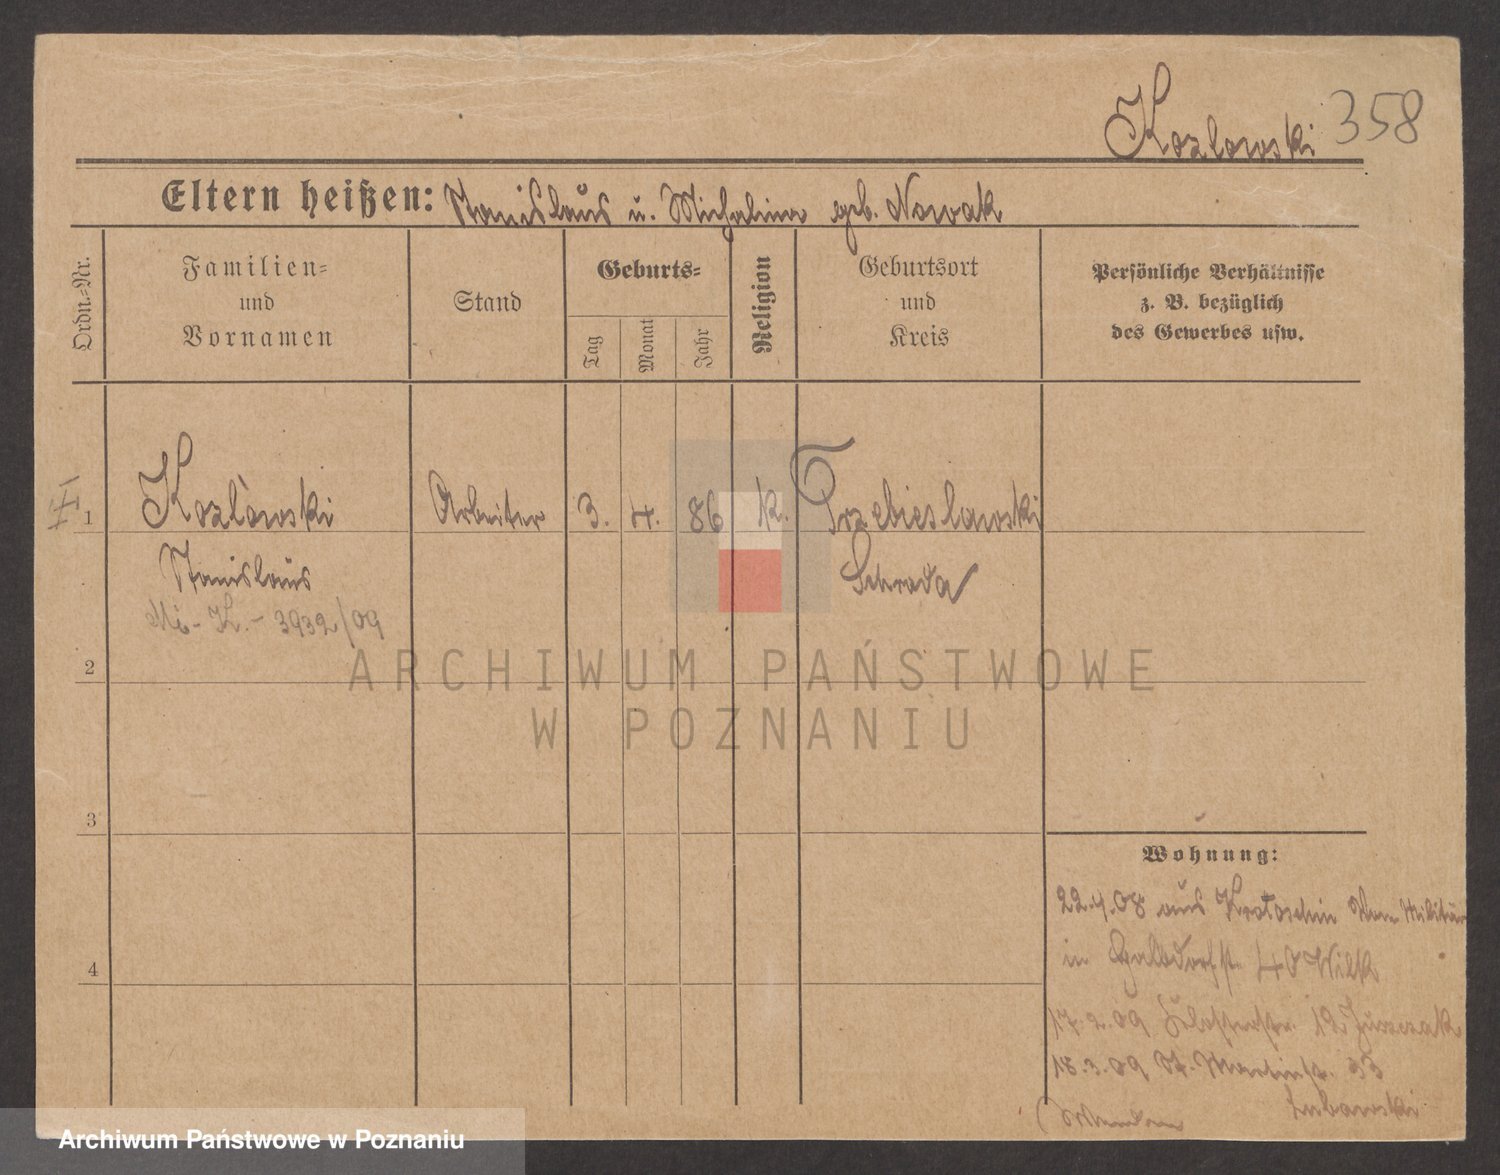 Kozlowski 358
Eltern heißen: Stanislaus u. Michalina geb. Nowak
Ordn.-Nr.
Familien- und Vornamen
Stand
Geburts-
Tag
Monat
Jahr
Religion
Geburtsort und Kreis
Persönliche Verhältnisse z. B. bezüglich des Gewerbes usw.
1 Kozlowski Arbeiter 3. 4. 86 k. Trzebieslawski
Stanislaus Schroda
3932/09
2
ARCHIWUM PAŃSTWOWE
W POZNANIU
3
Wohnung:
22.4.08 aus Krotoschin Militär
in 40 Wilk
4
17.2.09 18 Juszczak
18.3.09 St. Martinstr. 33
Lubawski
Archiwum Państwowe w Poznaniu